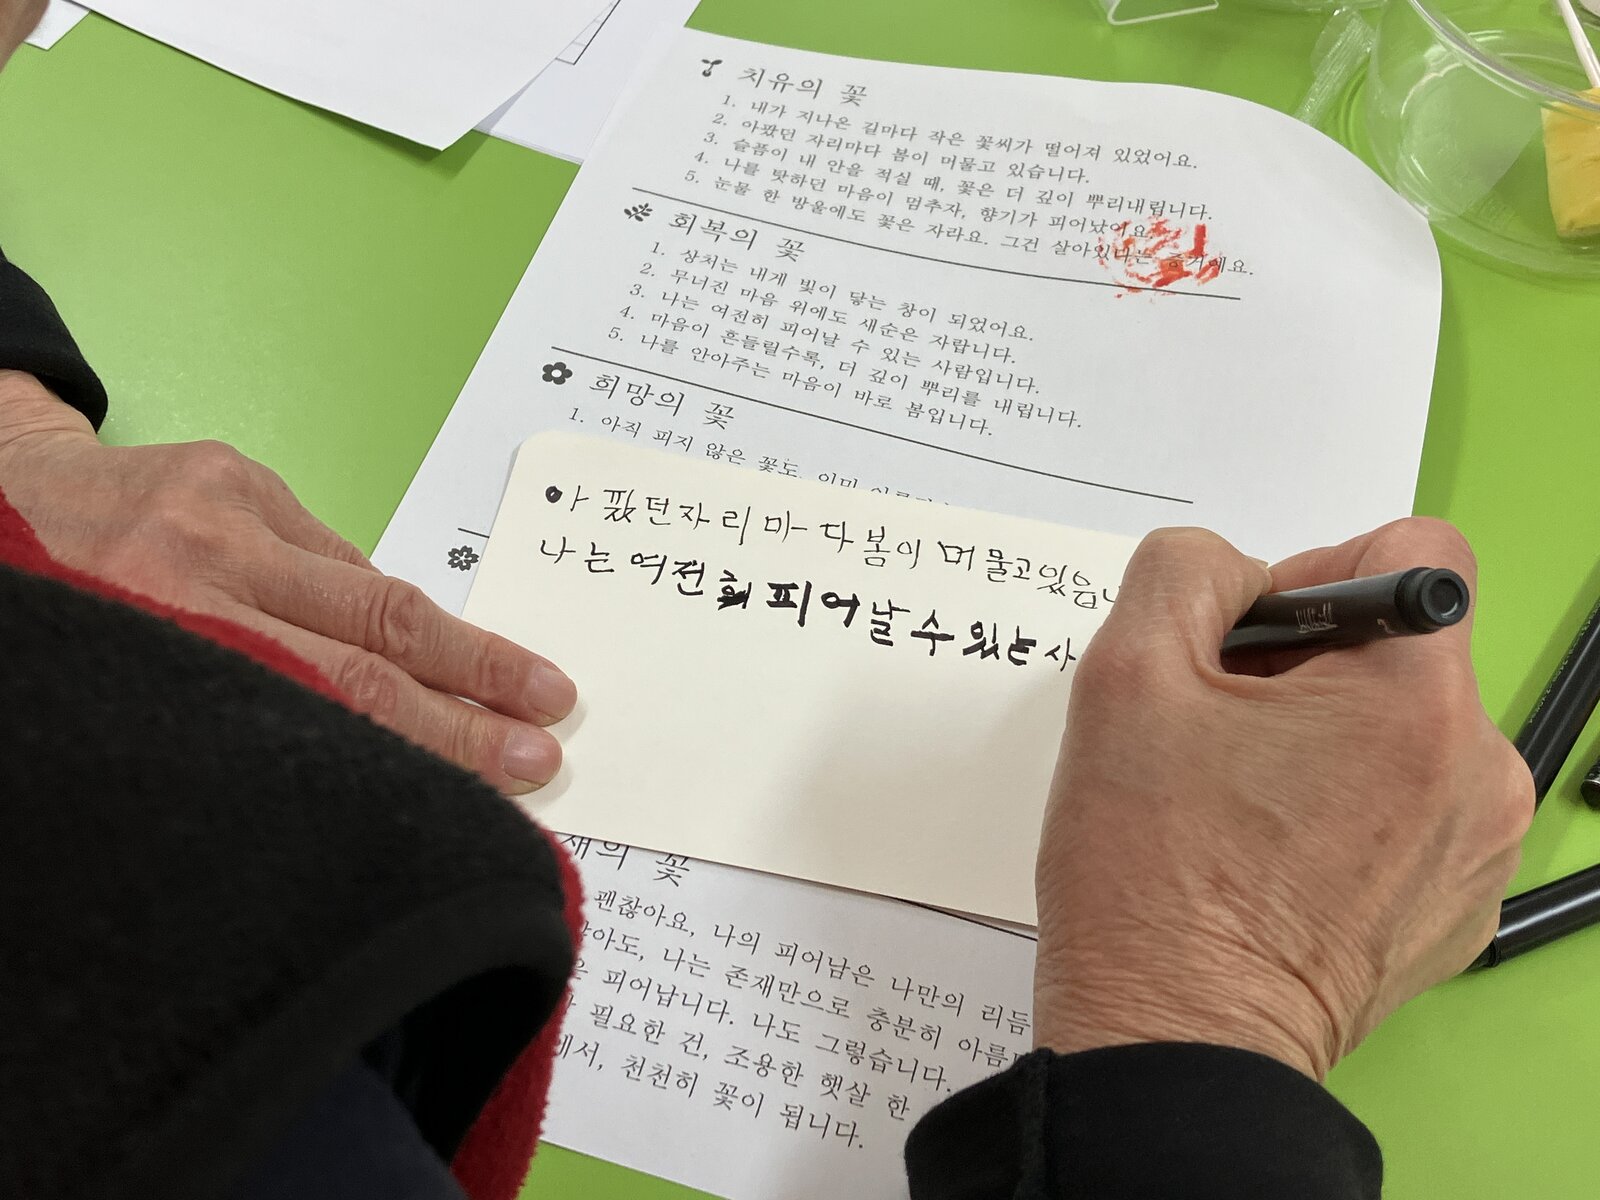 치유의 꽃
1. 내가 지나온 길마다 작은 꽃씨가 떨어져 있었어요.
2. 아팠던 자리마다 봄이 머물고 있습니다.
3. 슬픔이 내 안을 적실 때, 꽃은 더 깊이 뿌리내립니다.
4. 나를 탓하던 마음이 멈추자, 향기가 피어났어요.
5. 눈물 한 방울에도 꽃은 자라요. 그건 살아있다는 증거예요.
회복의 꽃
1. 상처는 내게 빛이 닿는 창이 되었어요.
2. 무너진 마음 위에도 새순은 자랍니다.
3. 나는 여전히 피어날 수 있는 사람입니다.
4. 마음이 흔들릴수록, 더 깊이 뿌리를 내립니다.
5. 나를 안아주는 마음이 바로 봄입니다.
희망의 꽃
1. 아직 피지 않은 꽃도, 이미
아팠던자리마다봄이 머물고있습니
나는여전히 피어날수있는사
의 꽃
괜찮아요, 나의 피어남은 나만의 리듬
않아도, 나는 존재만으로 충분히 아름
은 피어납니다. 나도 그렇습니다.
필요한 건, 조용한 햇살 한
에서, 천천히 꽃이 됩니다.